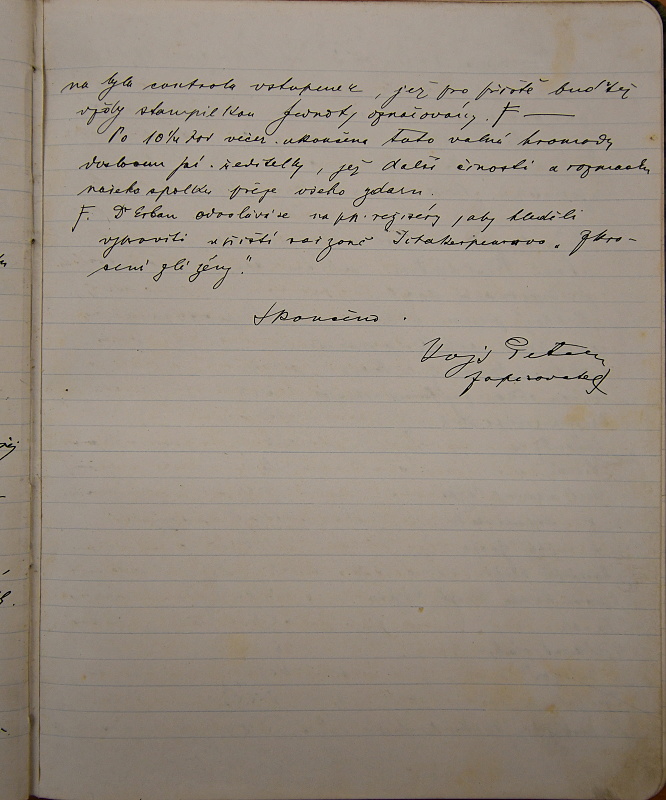 na byla controla vstupenek, jež pro příště buďtež
vždy stampilkou Jednoty označovány. F —
Po 10¼ hod večer ukončena tato valná hromada
proslovem pí. ředitelky, jež další činnosti a rozmachu
našeho spolku přeje všeho zdaru.
F. Dr Erban odvolává se na pp. regiséry, aby hleděli
vypraviti v příští saizoně Schakespearovo „Zkro-
cení zlé ženy."
Skončeno.
Vojt
zapisovatel